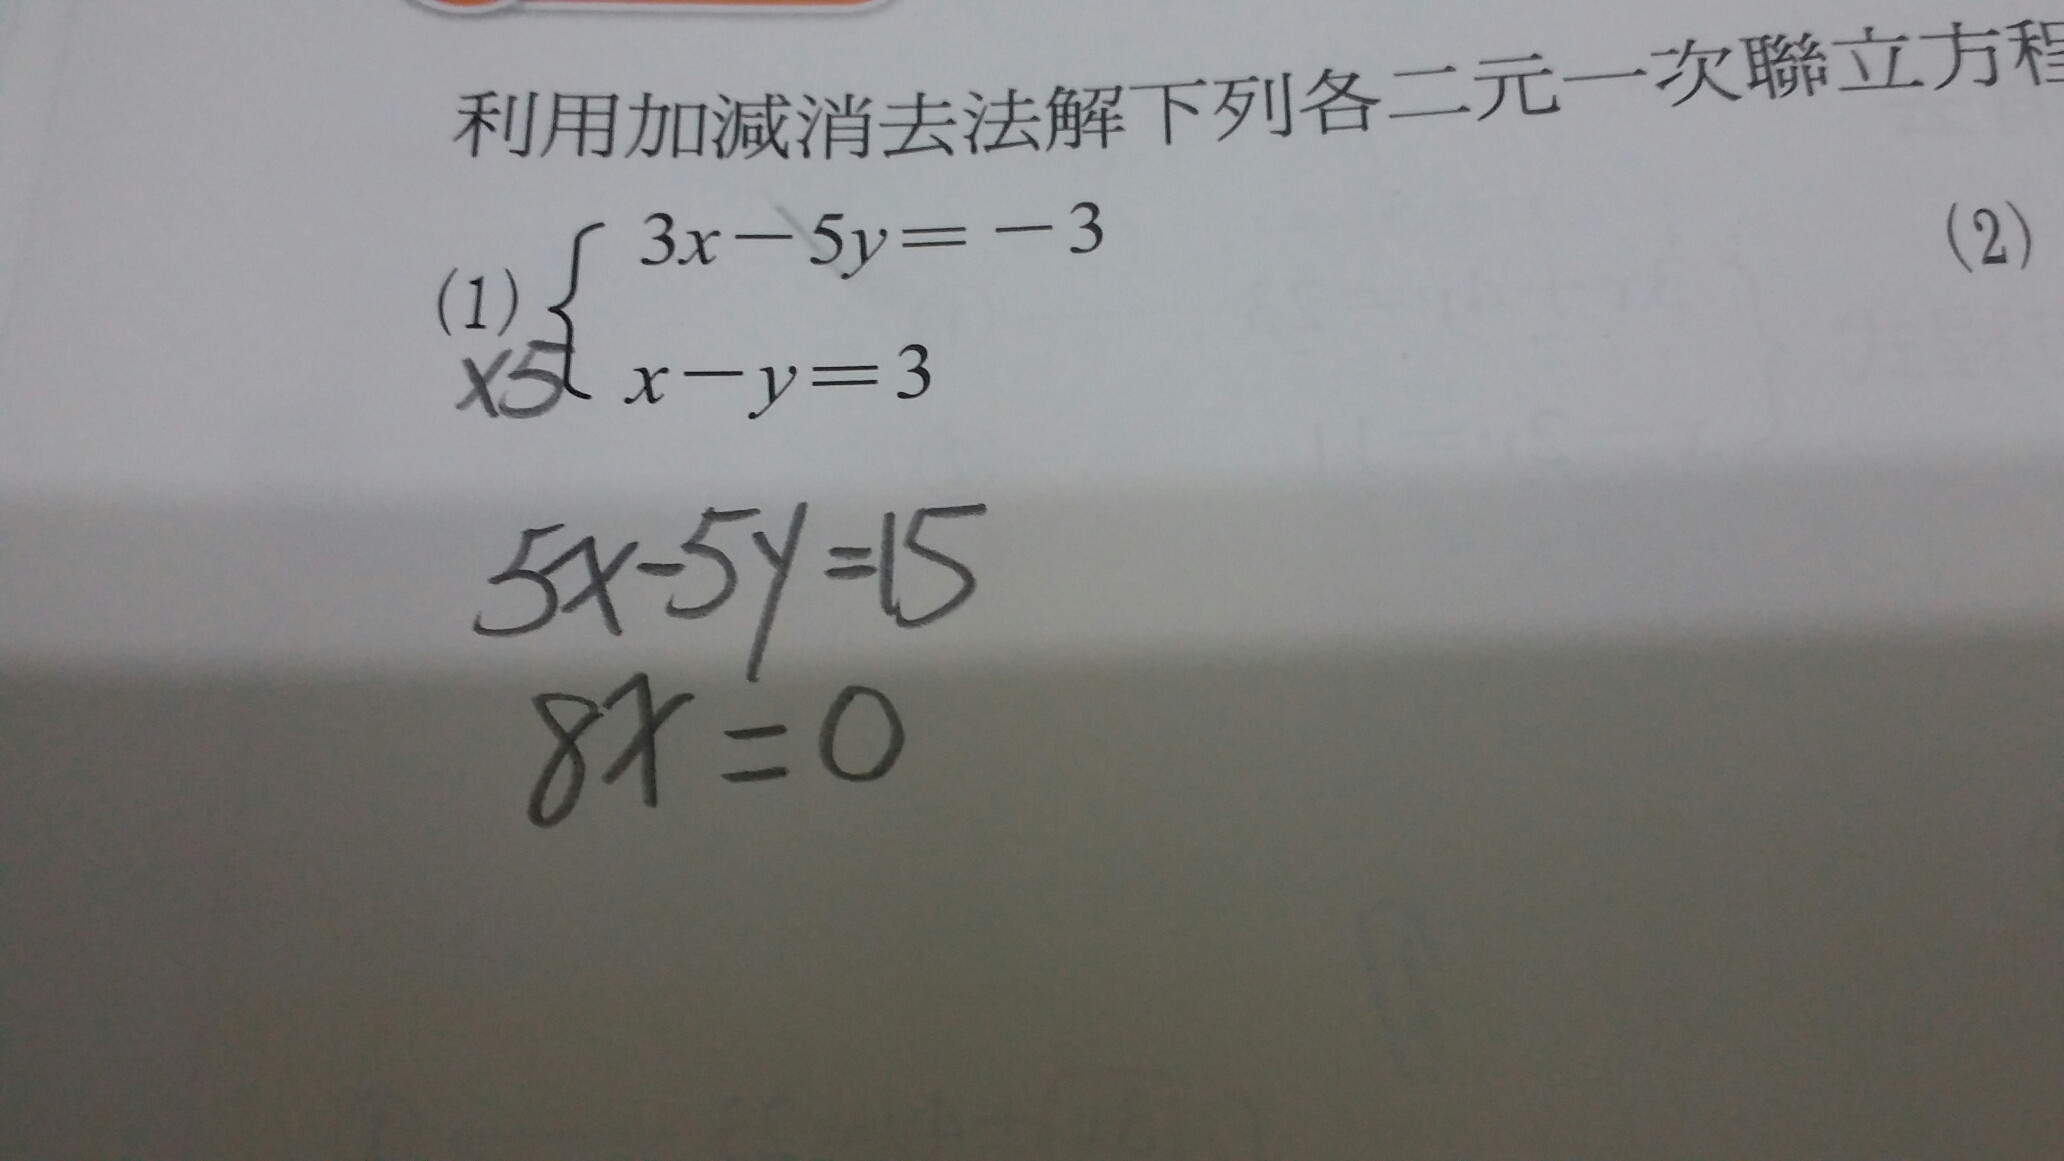 利用加減消去法解下列各二元一次聯立方程
(1) { 3x－5y＝－3
x－y＝3
×5
(2)
5x-5y=15
8x=0